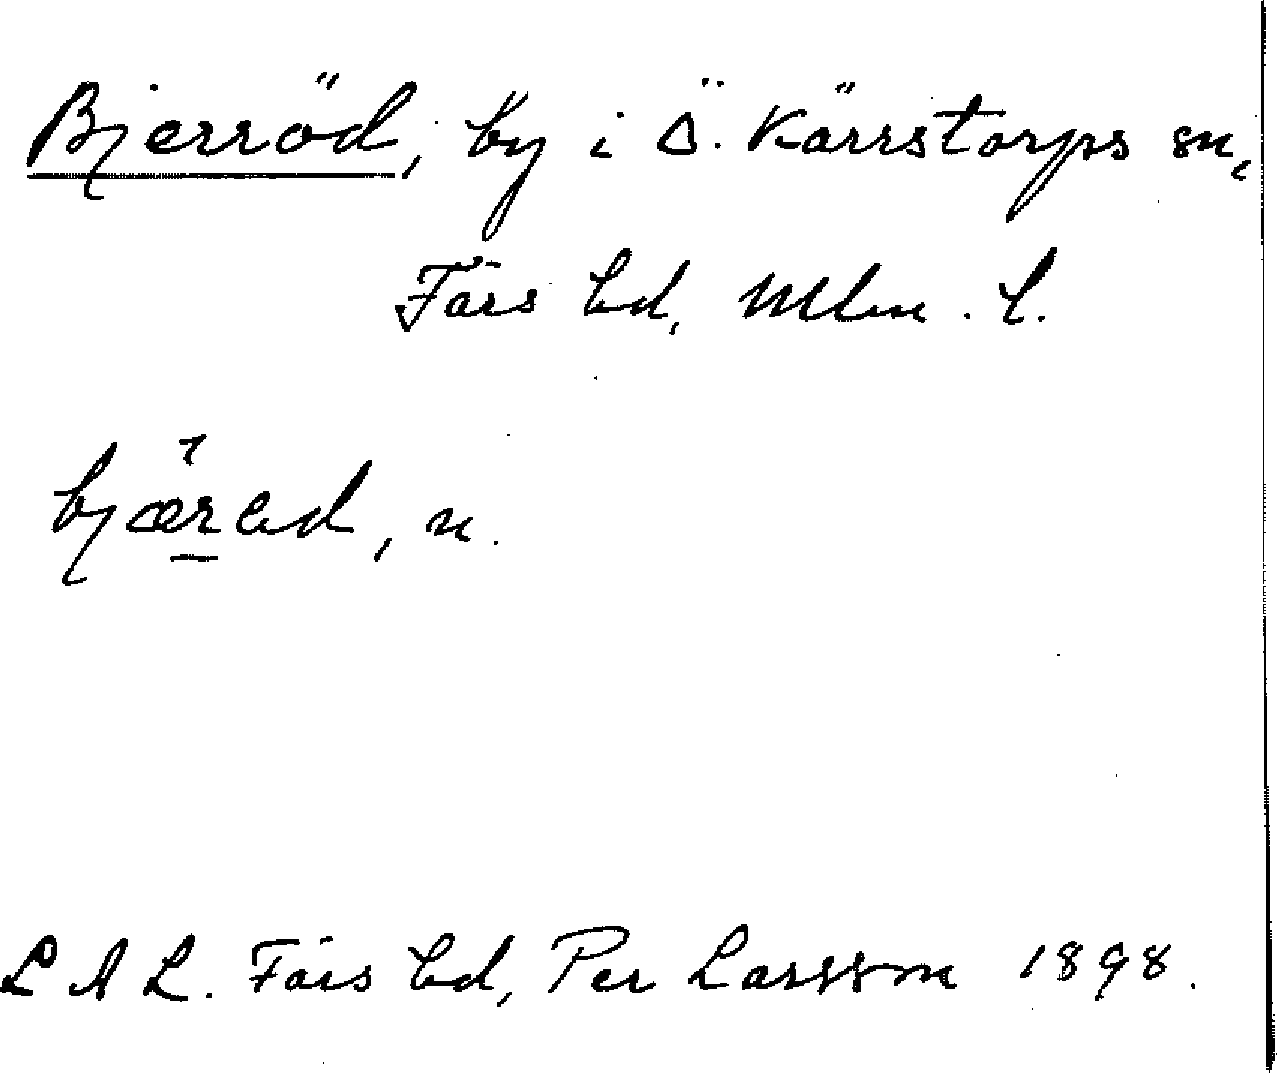 Bjerröd, by i Ö. Kärrstorps sn,
Färs hd, Mlm. l.
bjæred, n.
L A L. Färs hd, Per Larsson 1898.